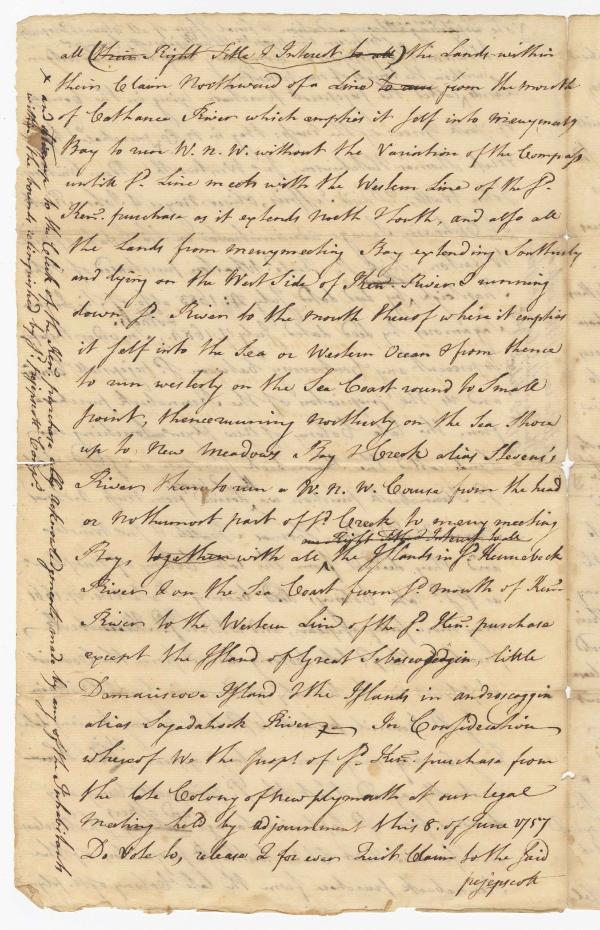 all (their Right Title & Interest to all) the Lands within
their Claim Northward of a Line to run from the mouth
of Cathance River which empties it self into merrymeetg
Bay to run W. N. W. without the Variation of the Compass
untill sd. Line meets with the Western Line of the sd.
Kenn. purchase as it extends North & South, and also all
the Lands from merrymeeting Bay extending Southerly
and lying on the West Side of Kenn. River & running
down sd. River to the mouth thereof where it empties
it self into the Sea or Western Ocean & from thence
to run westerly on the Sea Coast round to Small
point, thence running northerly on the Sea Shore
up to New Meadows Bay & Creek alias Stevens's
River thence to run a W. N. W. Course from the head
or northermost part of sd. Creek to merry meeting
our Right Title & Interest to all
Bay, together with all the Islands in sd. Kennebeck
River & on the Sea Coast from sd. mouth of Kenn.
River to the Western Line of the sd. Kenn. purchase
except the Island of Great Sebascodegin, little
Damariscove Island & the Islands in androscoggin
alias Sagadahock River In Consideration
whereof We the propt. of sd. Kenn. purchase from
the late Colony of new plymouth at our legal
Meeting held by adjournment this 8. of June 1757
Do Vote to, release & for ever Quit Claim to the Said
pejepscott
x and to the Select of the Kenn. purchase all the acknowledgments made by any of the Inhabitants
within the bounds relinquished by sd. pejepscott Compa.